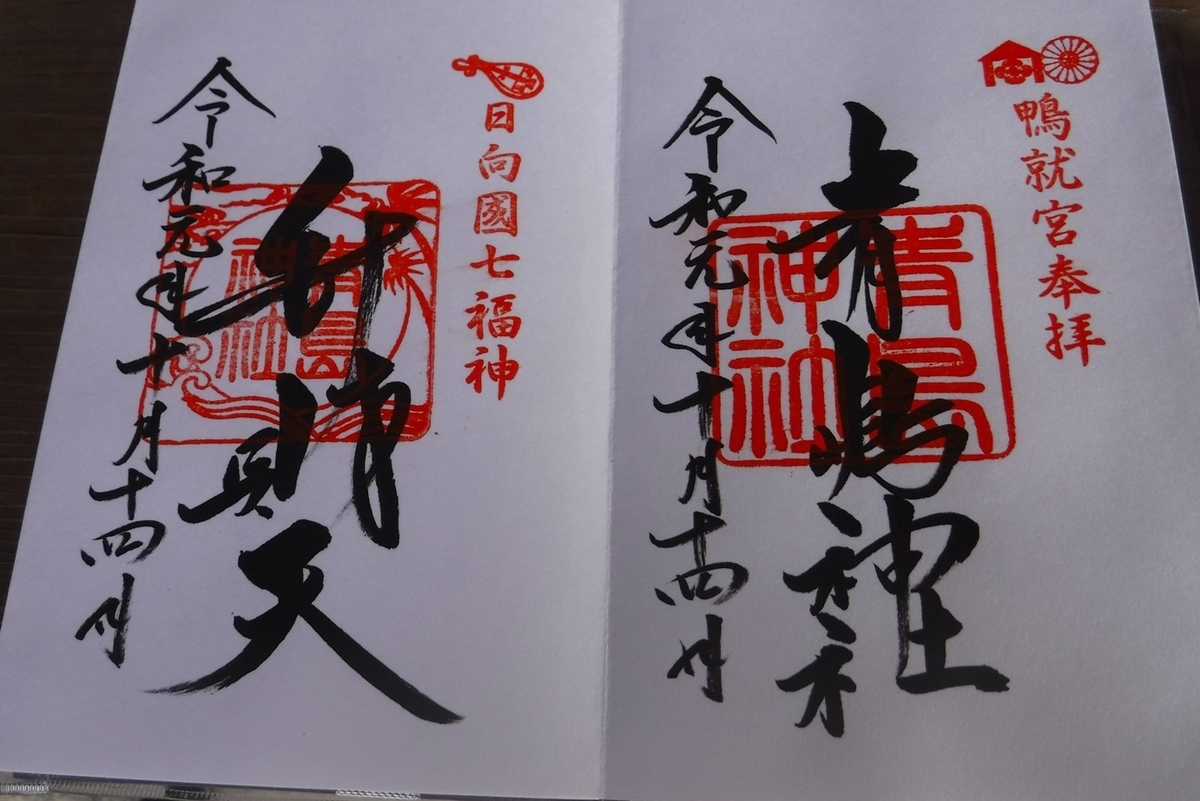 鴨就宮奉拝
青嶋神社
青島
神社
令和元年十月十四日
日向國七福神
弁財天
青島
神社
令和元年十月十四日